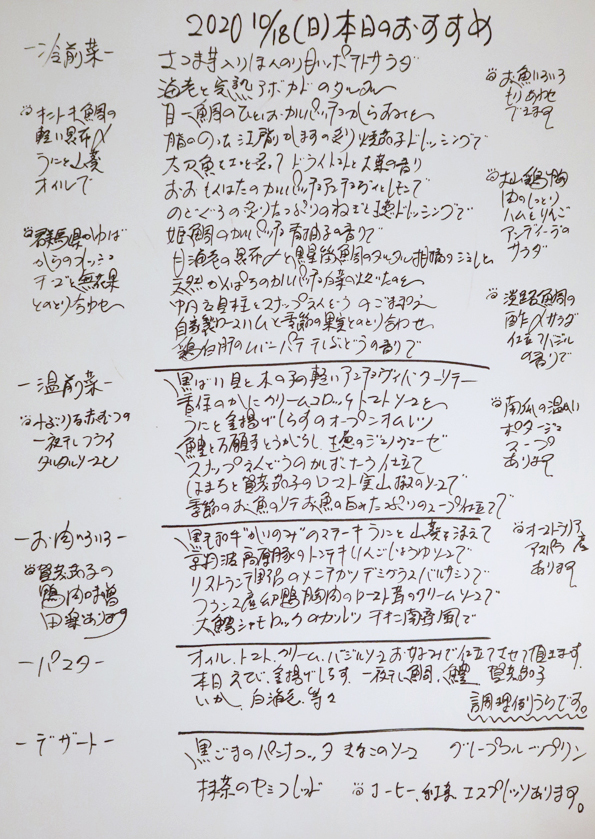 2020 10/18(日)本日のおすすめ
-冷前菜-
さつま芋入りほんのり甘いポテトサラダ
海老と完熟アボカドのタルタル
目一鯛のひと塩カルパッチョからすみと
脂ののった江戸前かますの炙り焼茄子ドレッシングで
太刀魚をさっと炙って ドライトマトと大葉の香り
おおもんはたのカルパッチョアンチョヴィとレモンで
のどぐろの炙りたっぷりのねぎと ドレッシングで
姫鯛のカルパッチョ青柚子の香りで
白海老の昆布〆と
天然かんぱちのカルパッチョ
帆立貝柱とスナップえんどうのごま和え
自家製ロースハムと季節の果実とのとり合わせ
鶏白肝のムースパテ ぶどうの香りで
お魚いろいろ
もりあわせ
できます
軽い昆布〆
オイルで
群馬県のゆば
からのフレッシュ
チーズと無花果
とのとり合わせ
鶏胸
肉のしっとり
ハムとりんご
アンディーブの
サラダ
淡路鯛の
酢〆サラダ
仕立てバジル
の香りで
-温前菜-
黒ばい貝と木の子の軽いアンチョヴィバターソテー
香住のかにクリームコロッケトマトソースと
うにと釜揚げしらすのオープンオムレツ
鱧と万願寺とうがらし、 のジェノヴェーゼ
スナップえんどうのかぼなーら仕立て
はまちと賀茂茄子のロースト実山椒のソースで
季節のお魚のソテーお魚の白めたっぷりのスープ仕立てで
小ぶりな赤むつの
一夜干しフライ
タルタルソースと
南瓜の温かい
ポタージュ
スープ
あります
-お肉いろいろ-
黒毛和牛"かいのみ"のステーキ うにと山葵を添えて
京丹波高原豚のトンテキりんごしょうゆソースで
リストランテ野呂のメンチカツ デミグラスバルサミコで
フランス産 鴨胸肉のロースト茸のクリームソースで
大鰐シャモロックのカツレツ チキン南蛮風で
賀茂茄子の
鴨肉味噌
田楽あります
オーストラリア産
アスパラ
あります
-パスタ-
オイル、トマト、クリーム、バジルソースお好みで仕立てさせて頂きます。
本日 えび、釜揚げしらす、一夜干し鯛、鱧、賀茂茄子
いか、白海老、等々
調理例うらです。
-デザート-
黒ごまのパンナコッタ きなこのソース グレープフルーツプリン
抹茶のセミフレッド
コーヒー、紅茶、エスプレッソあります。